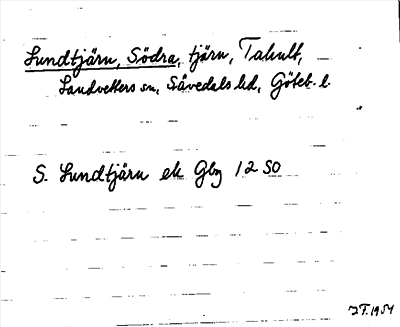 Lundtjärn, Södra, tjärn, Tahult,
Landvetters sn, Sävedals hd, Göteb. l.
S. Lundtjärn ek Gbg 12 SO
JT. 1954